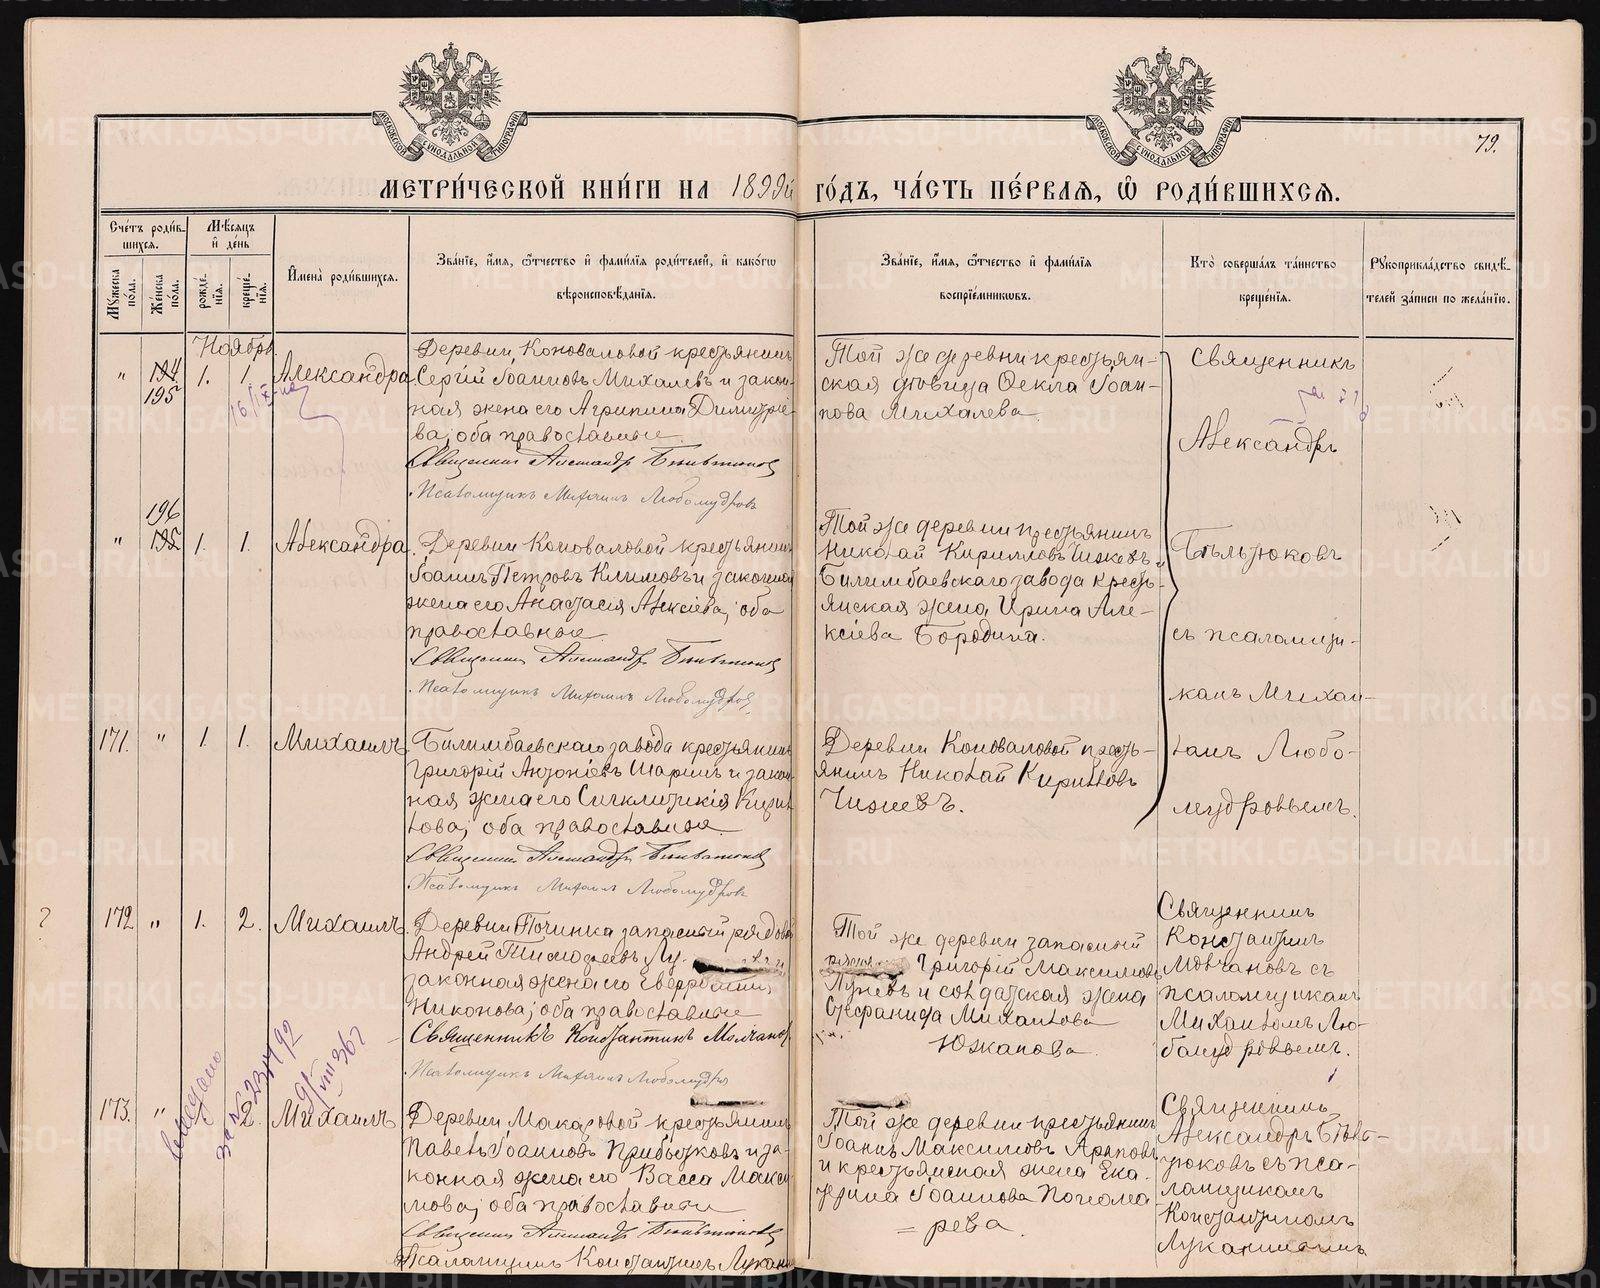 МЕТРИ́ЧЕСКОЙ КНИ́ГИ НА 1899й ГО́ДЪ, ЧА́СТЬ ПЕ́РВАЯ, Ѿ РОДИ́ВШИХСЯ.
79.
МОСКОВСКОЙ СѴНОДАЛЬНОЙ ТИПОГРАФІИ
МОСКОВСКОЙ СѴНОДАЛЬНОЙ ТИПОГРАФІИ
Сче́тъ роди́вшихся.
Мꙋжеска по́ла.
Же́нска по́ла.
Мѣ́сяцъ и҆ де́нь
рожде́нїя.
креще́нїя.
И҆мена̀ роди́вшихся.
Зва́нїе, и҆́мя, ѻ҆́тчество и҆ фами́лїя роди́телей, и҆ како́гѡ
вѣроисповѣ́данїя.
Зва́нїе, и҆́мя, ѻ҆́тчество и҆ фами́лїя
воспрїе́мникѡвъ.
Кто̀ соверша́лъ та́инство
креще́нїя.
Рꙋкоприкла́дство свидѣ́телей за́писи по жела́нїю.
Ноябрь
" 194 195 1. 1. Александра
Деревни Коноваловой крестьянинъ
Сергій Іоанновъ Михалевъ и закон-
ная жена его Агрипина Димитріе-
ва; оба православные.
Священникъ Александръ Бѣльтюковъ
Псаломщикъ Михаилъ Любомудровъ
Той же деревни крестьян-
ская дѣвица Ѳекла Іоан-
нова Михалева.
Священникъ
Александръ
Бѣльтюковъ
съ псаломщи-
комъ Михаи-
ломъ Любо-
мудровымъ.
196
" 195 1. 1. Александра
Деревни Коноваловой крестьянинъ
Іоаннъ Петровъ Климовъ и законная
жена его Анастасія Алексіева; оба
православные
Священникъ Александръ Бѣльтюковъ
Псаломщикъ Михаилъ Любомудровъ
Той же деревни крестьянинъ
Николай Кирилловъ Чижевъ и
Билимбаевскаго завода кресть-
янская жена Ирина Але-
ксіева Бородина.
171. " 1. 1. Михаилъ
Билимбаевскаго завода крестьянинъ
Григорій Антоніевъ Шаринъ и закон-
ная жена его Синклитикія Кирил-
лова; оба православные
Священникъ Александръ Бѣльтюковъ
Псаломщикъ Михаилъ Любомудровъ
Деревни Коноваловой кресть-
янинъ Николай Кирилловъ
Чижевъ.
? 172 " 1. 2. Михаилъ
Деревни Починка запасный рядовой
Андрей Тимоѳеевъ
законная жена его
Никонова; оба православные
Священникъ Константинъ Молчановъ
Псаломщикъ Михаилъ Любомудровъ
Той же деревни запасный
Григорій Максимовъ
Лужевъ и солдатская жена
Стефанида Михаилова
Южакова.
Священникъ
Константинъ
Молчановъ съ
псаломщикомъ
Михаиломъ Лю-
бомудровымъ.
выдано
173. " 2. Михаилъ
Деревни Макаровой крестьянинъ
Павелъ Іоанновъ Прибытковъ и за-
конная жена его Васса Макси-
мова; оба православные
Священникъ Александръ Бѣльтюковъ
Псаломщикъ Константинъ Лукан
Той же деревни крестьянинъ
Іоаннъ Максимовъ Араповъ
и крестьянская жена Ека-
терина Іоаннова Понома-
= рева.
Священникъ
Александръ Бѣль-
тюковъ съ пса-
ломщикомъ
Константиномъ
Луканинымъ
METRIKI.GASO-URAL.RU